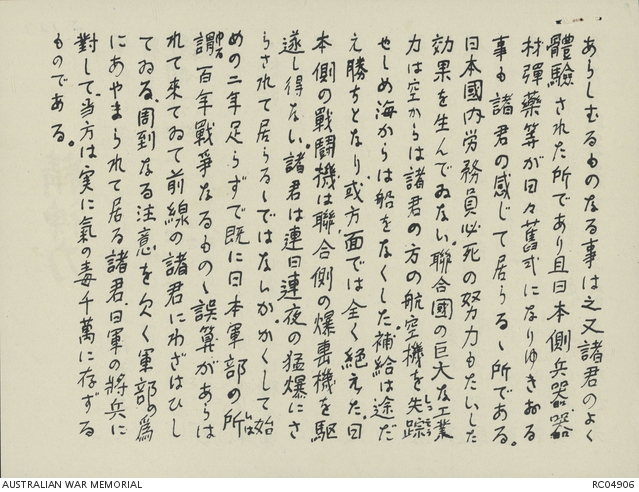 あらしむるものなる事は之又諸君のよく
體驗された所であり且日本側兵器器
材彈藥等が日々舊式になりゆきおる
事も諸君の感じて居らるゝ所である。
日本國内労務員必死の努力もたいした
効果を生んでゐない。聯合國の巨大な工業
力は空からは諸君の方の航空機を失踪
せしめ海からは船をなくした。補給は途だ
え勝ちとなり或方面では全く絶えた。日
本側の戰鬪機は聯合側の爆裏機を駆
逐し得ない。諸君は連日連夜の猛爆にさ
らされて居らるゝではないか。かくして始
めの二年足らずで既に日本軍部の所
謂百年戰爭なるものゝ誤算があらは
れて来てゐて前線の諸君にわざはひし
てゐる。周到なる注意を欠く軍部の爲
にあやまられて居る諸君、日軍の將兵に
對して、当方は実に氣の毒千萬に存ずる
ものである。
AUSTRALIAN WAR MEMORIAL
RC04906